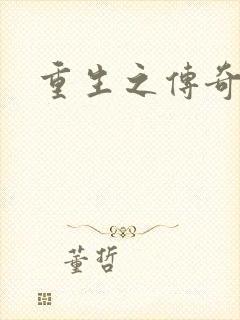 重生之傳奇
董哲